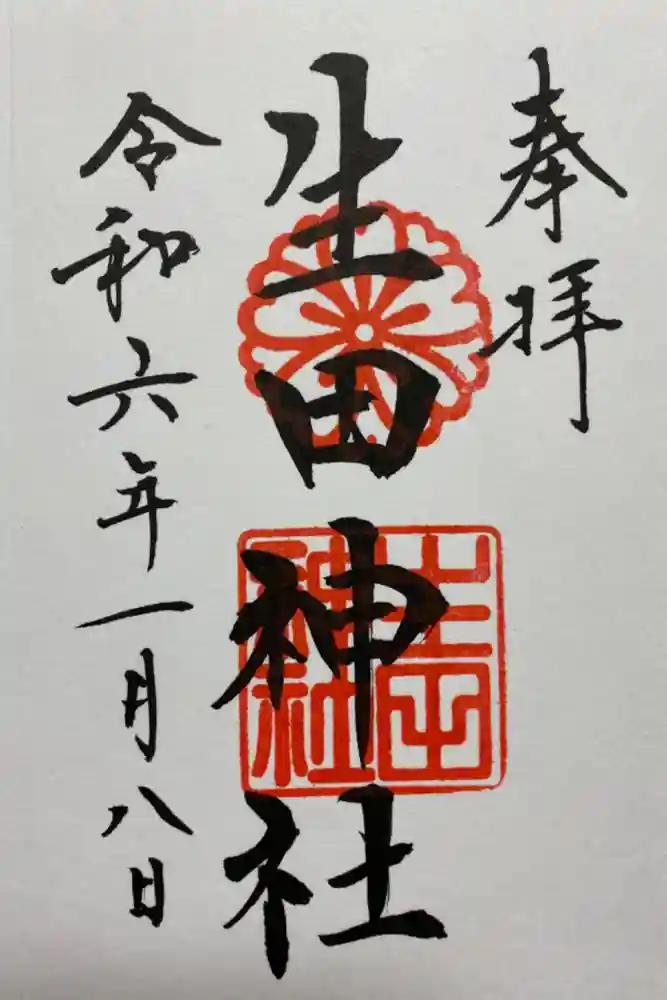 奉拝
生田神社
生田神社
令和六年一月八日